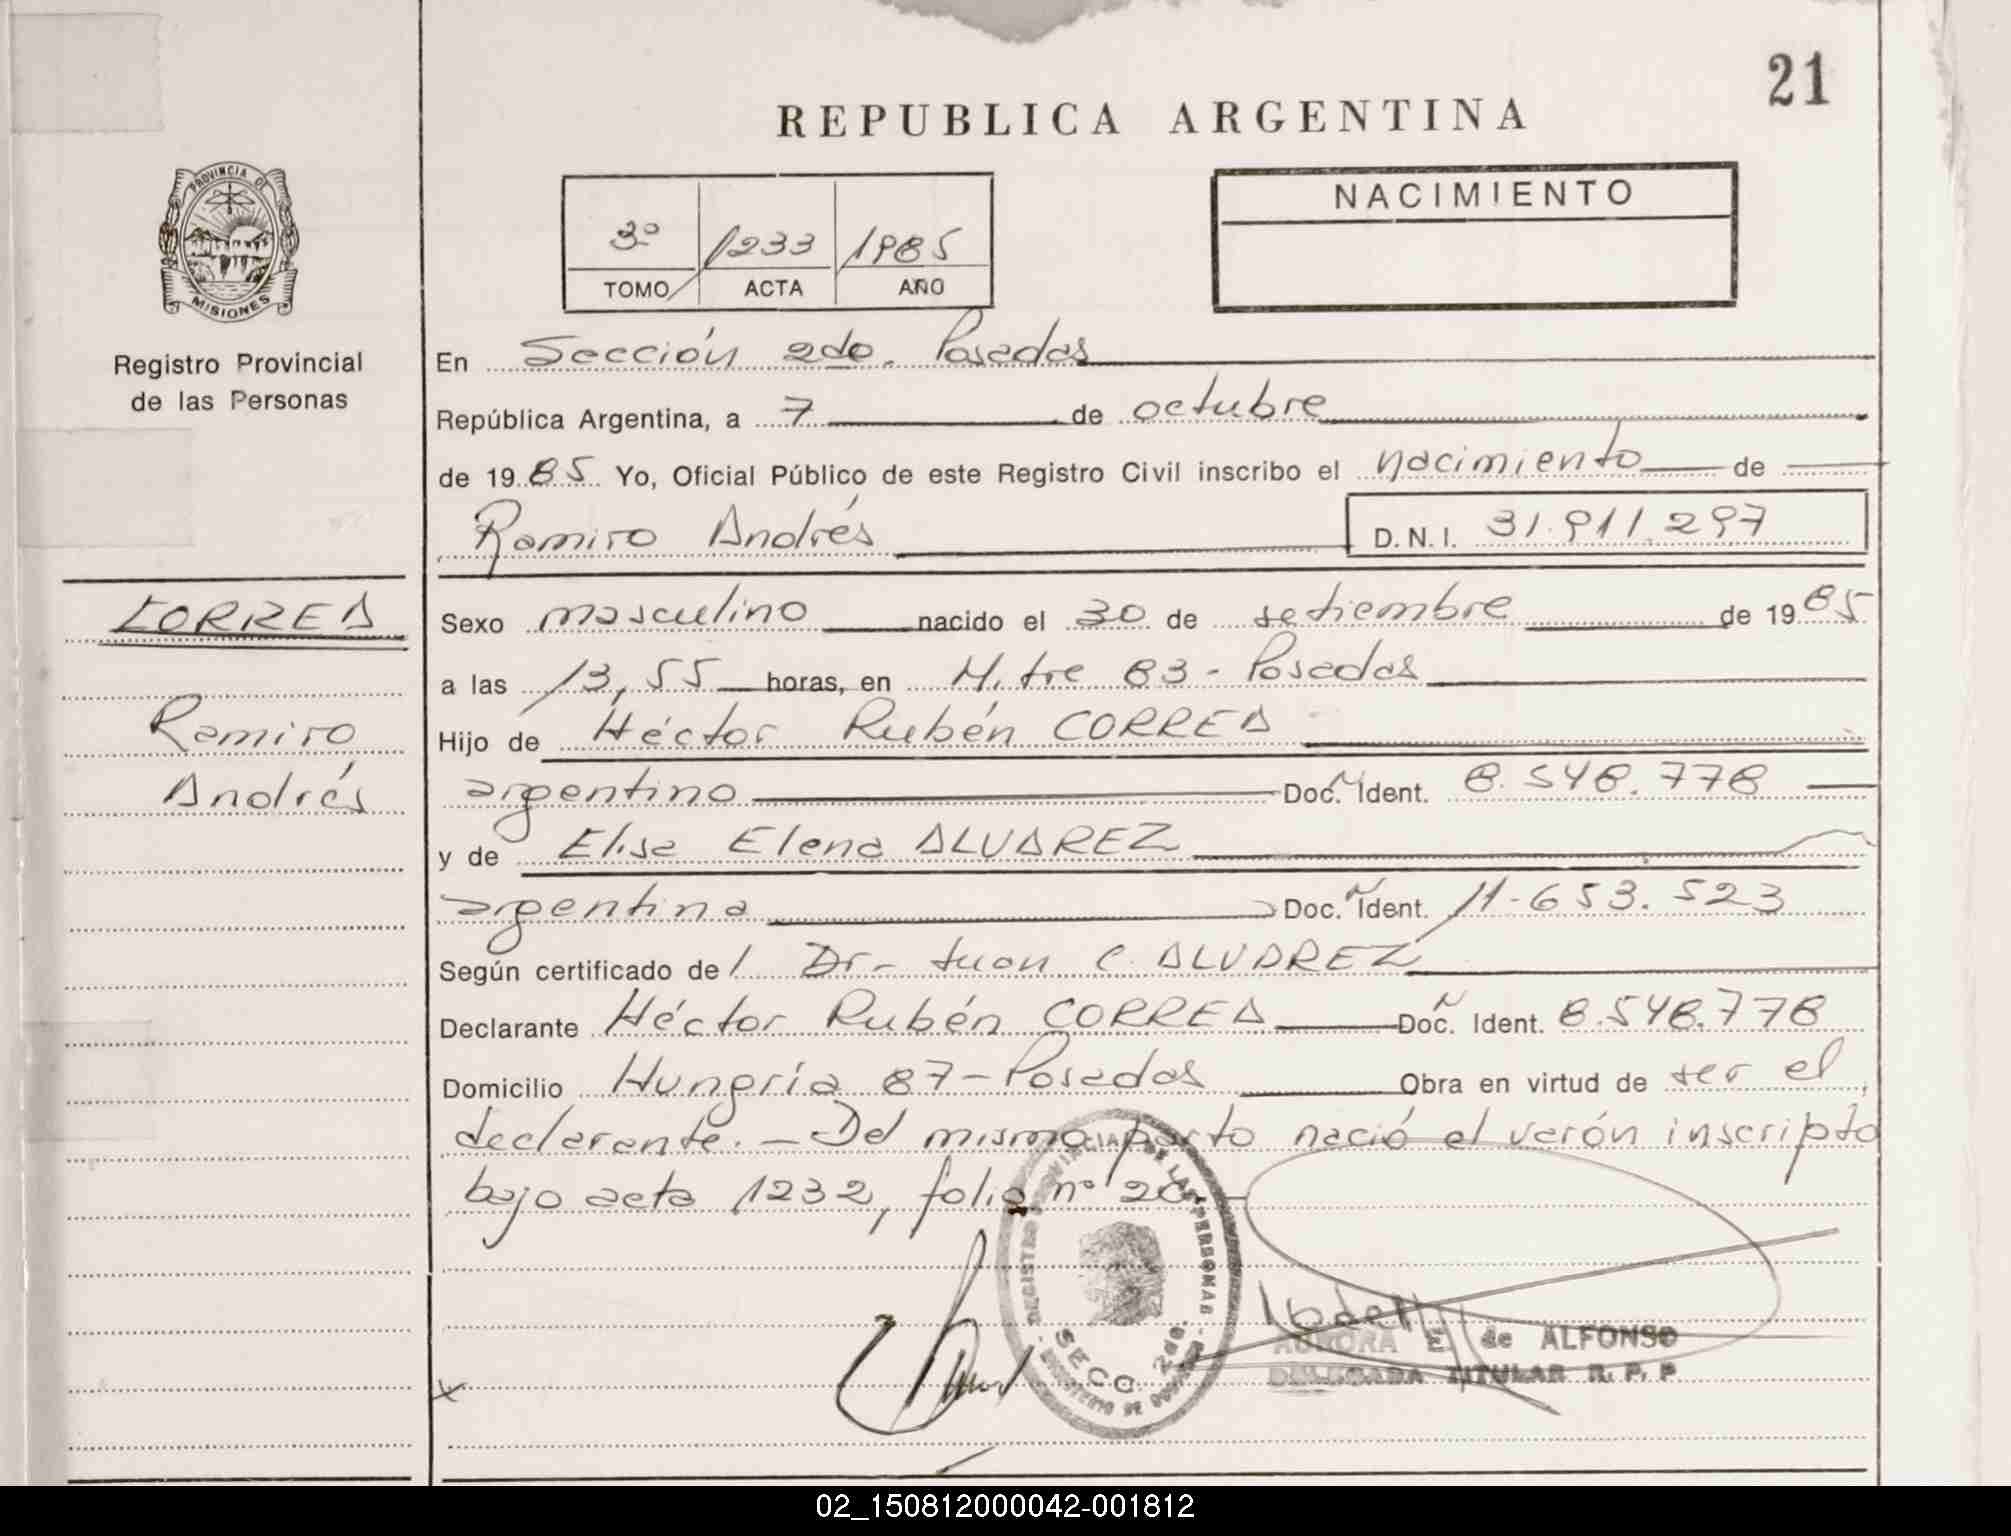 21
REPUBLICA ARGENTINA
PROVINCIA DE
MISIONES
Registro Provincial
de las Personas
3º 1233 1985
TOMO ACTA AÑO
NACIMIENTO
En Sección 2da. Posadas
República Argentina, a 7 de octubre
de 1985 Yo, Oficial Público de este Registro Civil inscribo el nacimiento de
Ramiro Andrés D.N.I. 31.911.297
CORREA
Ramiro
Andrés
Sexo masculino nacido el 30 de setiembre de 1985
a las 13,55 horas, en Mitre 83 - Posadas
Hijo de Héctor Rubén CORREA
argentino Doc. Ident. 8.548.778
y de Elisa Elena ALVAREZ
argentina Doc. Ident. 11-653.523
Según certificado de/ Dr- Juan C. ALVAREZ
Declarante Héctor Rubén CORREA Doc. Ident. 8.548.778
Domicilio Hungría 87 - Posadas Obra en virtud de ser el
declarante. - Del mismo parto nació el varón inscripto
bajo acta 1232, folio nº 20-
REGISTRO PROVINCIAL DE LAS PERSONAS
SECC. 2da.
MINISTERIO DE GOBIERNO
AURORA E. de ALFONSO
DELEGADA TITULAR R. P. P
02_150812000042-001812